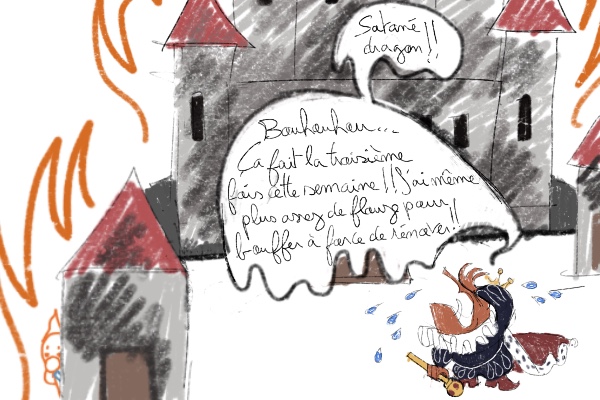 Satané
dragon!!
Bouheuheu...
Ça fait la troisième
fois cette semaine!! J'ai même
plus assez de flouze pour
bouffer à force de rénover!!